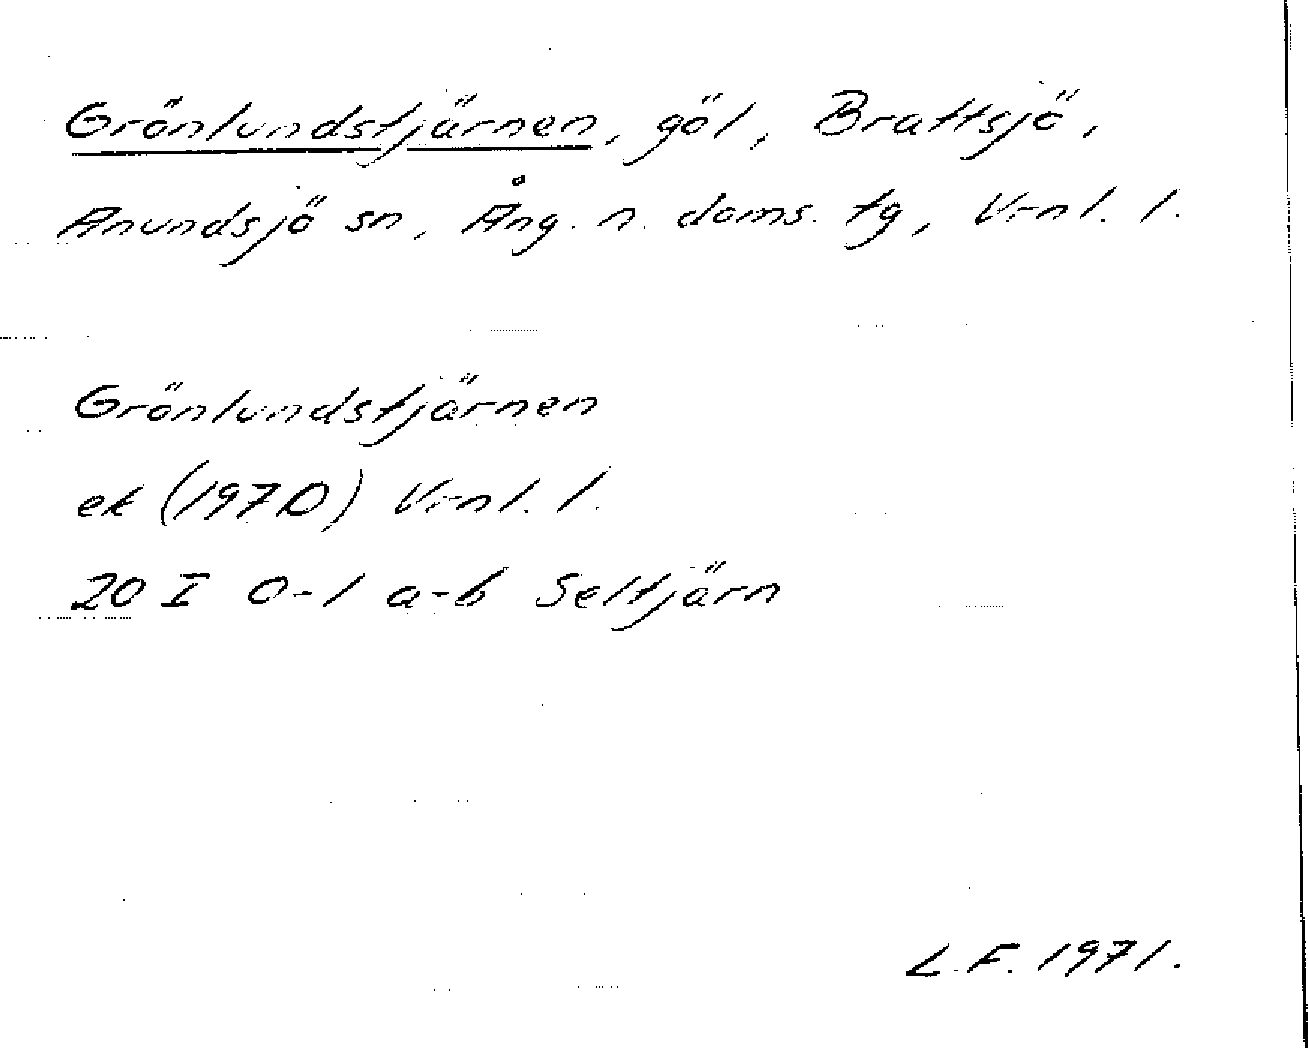 Grönlundstjärnen, göl, Brattsjö,
Anundsjö sn, Ång. n. doms. tg, Vrnl. l.
Grönlundstjärnen
ek (1970) Vrnl. l.
20 I 0-1 a-b Seltjärn
L.F. 1971.